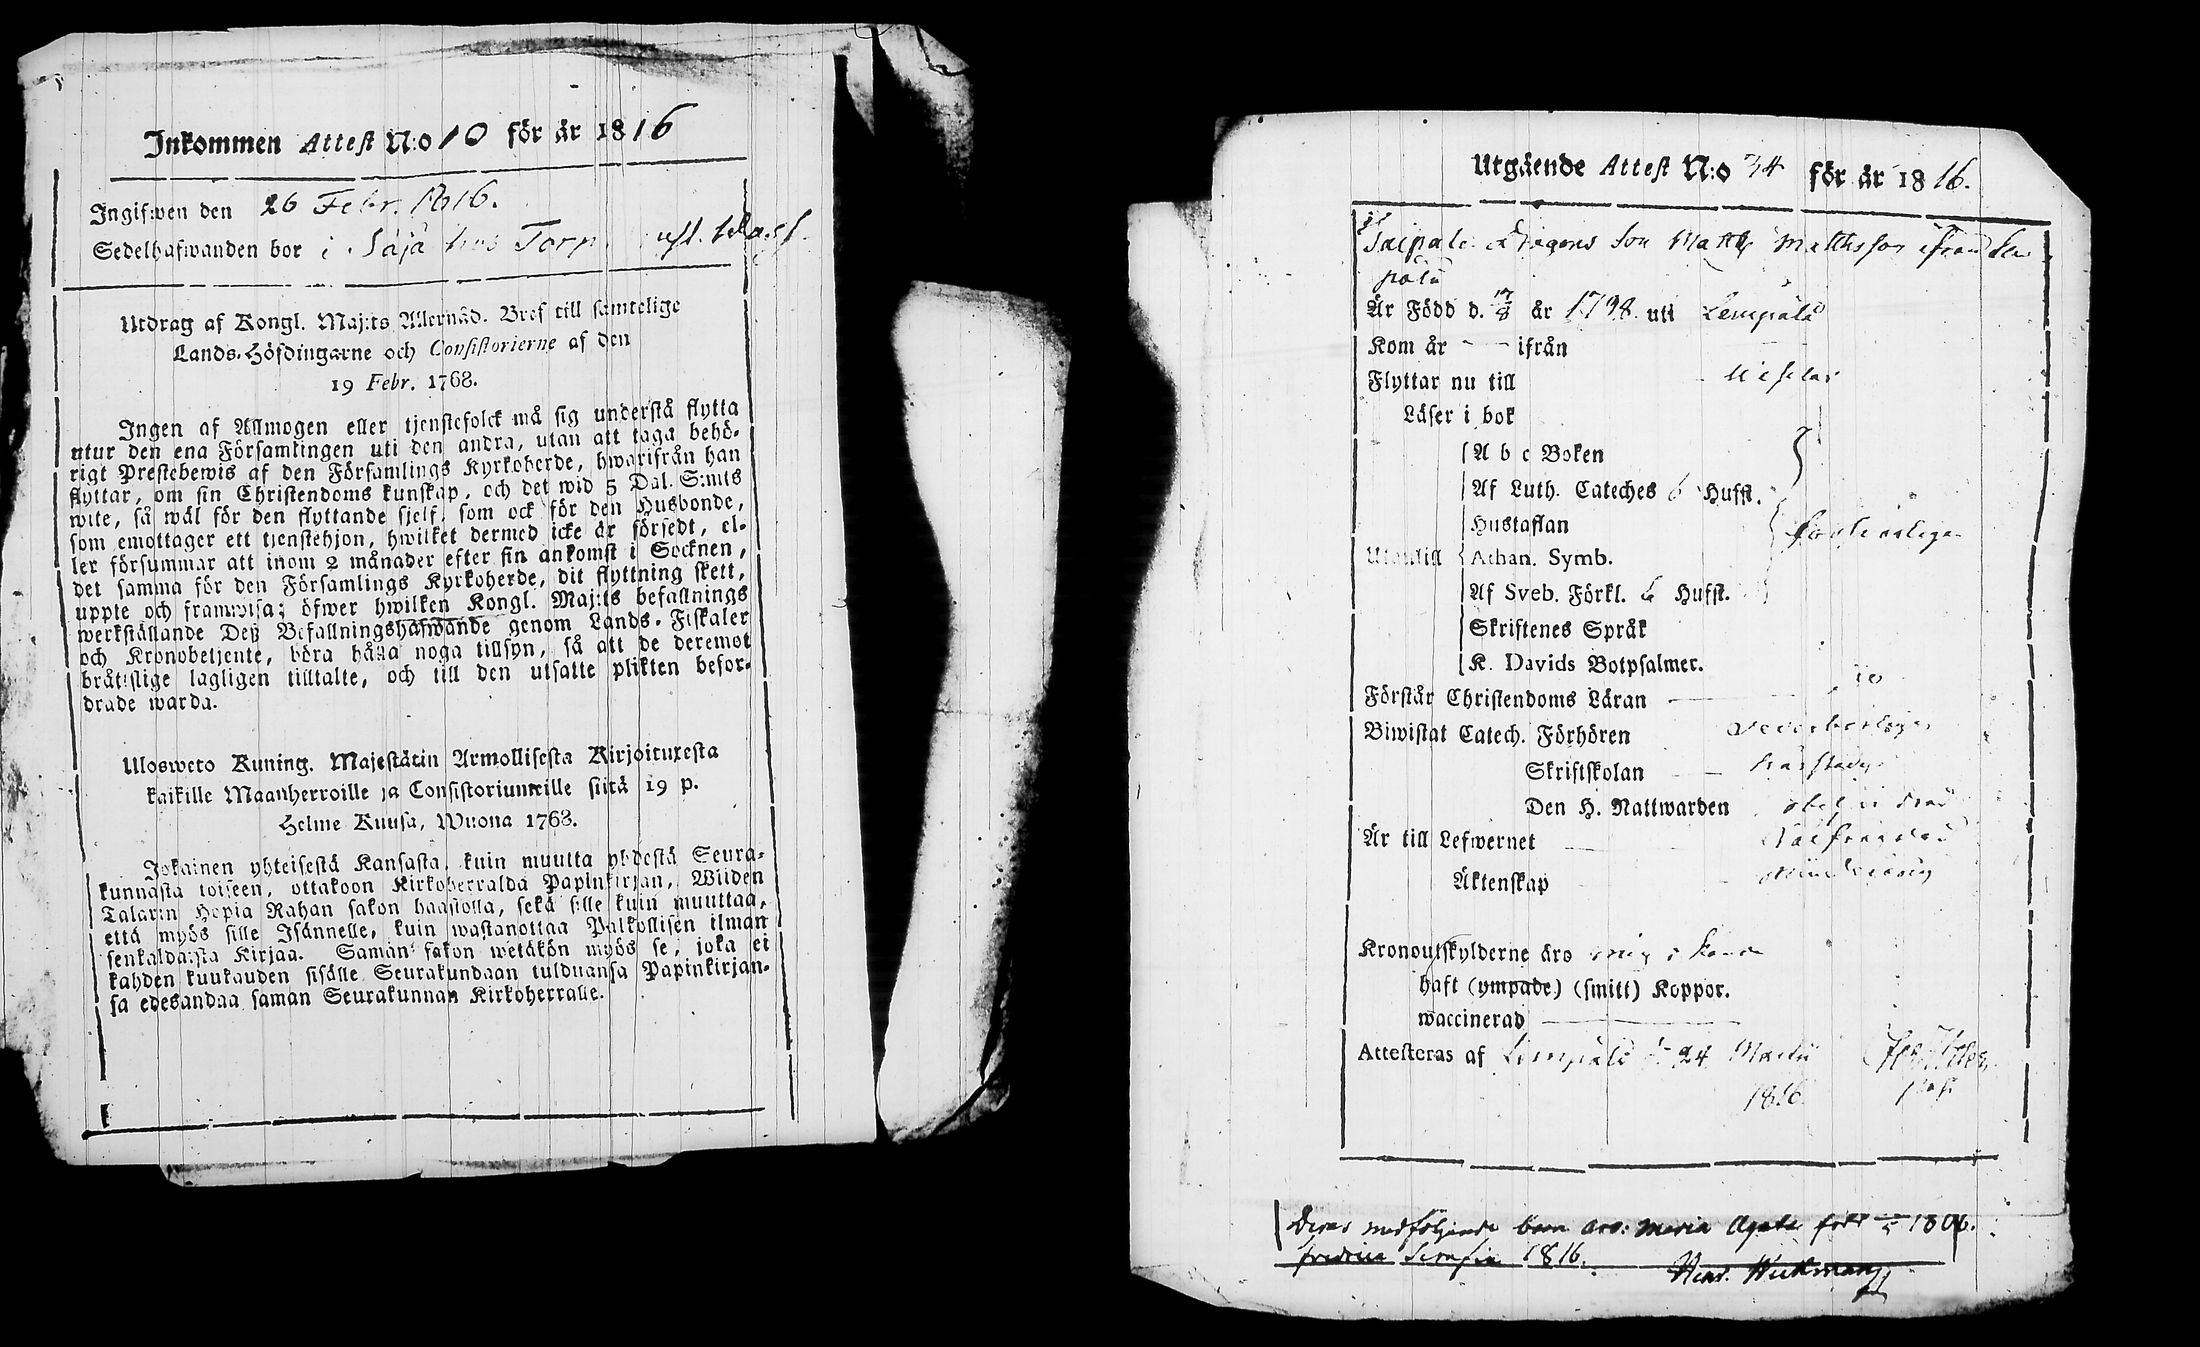 Inkommen Attest N:o 10 för år 1816
Ingifwen den 26 Febr. 1816.
Sedelhafwanden bor i Saja Torp
Utdrag af Kongl. Maj:ts Allernåd. Bref till samtelige
Lands-Höfdingarne och Consistorierne af den
19 Febr. 1768.
Ingen af Allmogen eller tjenstefolck må sig understå flytta
utur den ena Församlingen uti den andra, utan att taga behö-
rigt Prestebewis af den Församlings Kyrkoherde, hwarifrån han
flyttar, om sin Christendoms kunskap, och det wid 5 Dal. S:mts
wite, så wäl för den flyttande sjelf, som ock för den Husbonde,
som emottager ett tjenstehjon, hwilket dermed icke är försedt, el-
ler försummar att inom 2 månader efter sin ankomst i Socknen,
det samma för den Församlings Kyrkoherde, dit flyttning skett,
uppte och framwisa; öfwer hwilken Kongl. Maj:ts befallnings
werkställande Deß Befallningshafwande genom Lands-Fiskaler
och Kronobetjente, böra hålla noga tillsyn, så att de deremot
bråtslige lagligen tilltalte, och till den utsatte plikten befor-
drade warda.
Ulosweto Kuning. Majestätin Armollisesta Kirjoituxesta
kaikille Maanherroille ja Consistoriumeille siitä 19 p.
Helme Kuusa, Wuona 1768.
Jokainen yhteisestä Kansasta, kuin muutta yhdestä Seura-
kunnasta toiseen, ottakoon Kirkoherralda Papinkirjan, Wiiden
Talarin Hopia Rahan sakon haastolla, sekä sille kuin muuttaa,
että myös sille Isännelle, kuin wastanottaa Palkollisen ilman
senkaldaista Kirjaa. Saman sakon wetäkön myös se, joka ei
kahden kuukauden sisälle Seurakundaan tulduansa Papinkirjan-
sa edesandaa saman Seurakunnan Kirkoherralle.
Utgående Attest N:o 34 för år 1816.
Drägens Son Matts Mattsson ifrån Lem
pälä
Är Född d. 17/8 år 1798 uti Lempälä
Kom år - - ifrån
Flyttar nu till
Läser i bok
A b c Boken
Af Luth. Cateches 6 Hufst.
Hustaflan
Utantill Athan. Symb.
Af Sveb. Förkl. 6 Hufst.
Skriftenes Språk
K. Davids Botpsalmer.
Förstår Christendoms Läran
Biwistat Catech. Förhören
Skriftskolan
Den H. Nattwarden
Är till Lefwernet
Äktenskap
Kronoutskylderne äro
haft (ympade) (smitt) Koppor.
waccinerad
Attesteras af Lempälä d. 24 Martii
1816.
Deras medföljande barn äro: Maria Agata född 1806.
Fredrica Serafia 1816.
Henr. Wickman